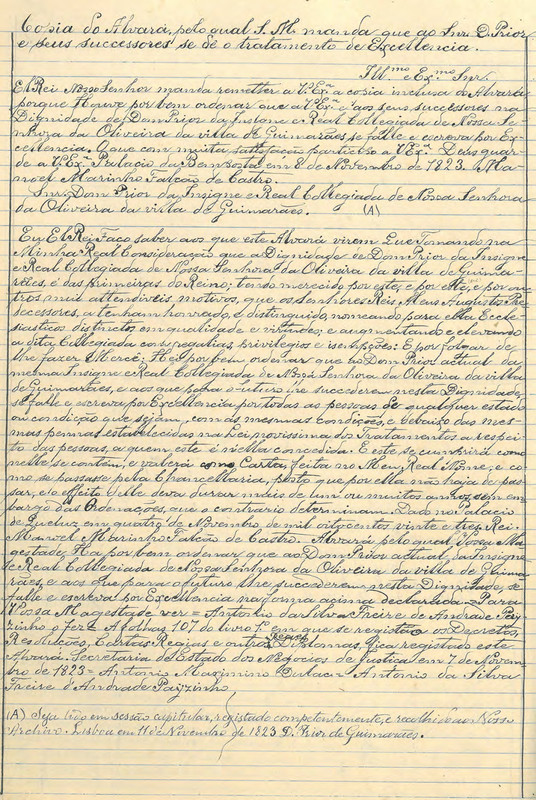 Copia do Alvará, pelo qual S. M. manda que ao Snr. D. Prior
e seus successores se dê o tratamento de Excellencia.
Ill.mo e Ex.mo Snr.
El Rei Nosso Senhor manda remetter a V.Ex.ª a copia inclusa do Alvará
porque Houve por bem ordenar que a V.Ex.ª e aos seus successores na
Dignidade de Dom Prior da Insigne e Real Collegiada de Nossa Se-
nhora da Oliveira da villa de Guimarães se falle e escreva por Ex-
cellencia. O que com muita satisfação participo a V.Ex.ª Deus guar-
de a V.Ex.ª Palacio da Bemposta em 8 de Novembro de 1823. Ma-
noel Marinho Falcão de Castro.
Snr. Dom Prior da Insigne e Real Collegiada de Nossa Senhora
da Oliveira da villa de Guimarães. (A)
Eu El Rei Faço saber aos que este Alvará virem Que Tomando na
Minha Real Consideração que a Dignidade de Dom Prior da Insigne
e Real Collegiada de Nossa Senhora da Oliveira da villa de Guima-
rães é das primeiras do Reino; tendo merecido por este, e por ella, e por ou-
tros mui attendiveis motivos, que os Senhores Reis Meus Augustos Pre-
decessores, a tenham honrado, e distinguido, nomeando para ella Eccle-
siasticos distinctos em qualidade e virtudes; e augmentando e elevando
a dita Collegiada com regalias, privilegios e isempções: E por folgar de
lhe fazer Mercê; Hei por bem, ordenar que ao Dom Prior actual da
mesma Insigne e Real Collegiada de Nossa Senhora da Oliveira da villa
de Guimarães, e aos que para o futuro lhe succederem nesta Dignidade,
se falle e escreva por Excellencia por todas as pessoas de qualquer estado
ou condição que sejam, com as mesmas condições, e debaixo das mes-
mas pennas estabelecidas na Lei novissima dos Tratamentos a respei-
to das pessoas, a quem este é nella concedida. E este se cumprirá como
nelle se contém, e valerá como Carta feita no Meu Real Nome, e co-
mo se passasse pela Chancellaria, posto que por ella não haja de pas-
sar, e o effeito delle deva durar mais de um ou muitos annos, sem em-
bargo das Ordenações, que o contrario determinam. Dado no Palacio
de Queluz em quatro de Novembro de mil oitocentos vinte e tres. Rei.
Manoel Marinho Falcão de Castro. Alvará pelo qual Vossa Ma-
gestade, Ha por bem ordenar que ao Dom Prior actual, da Insigne
e Real Collegiada de Nossa Senhora da Oliveira da villa de Guima-
rães, e aos que para o futuro lhe succederem nesta Dignidade, se
falle e escreva por Excellencia na forma acima declarada. Para
Vossa Magestade ver = Antonio da Silva Freire de Andrade Pay-
zinho o fez. A folhas 107 do livro 1º em que se registão os Decretos,
Resoluções, Cartas Regias e outros Diplomas, fica registado este
Alvará. Secretaria de Estado dos Negocios de Justiça em 7 de Novem-
bro de 1823 = Antonio Maximino Dulac = Antonio da Silva
Freire d'Andrade Payzinho
(A) Seja lido em sessão capitular, registado competentemente, e recolhido ao Nosso
Archivo. Lisboa em 11 de Novembro de 1823 D. Prior de Guimarães.